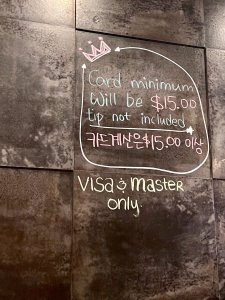 Card minimum
Will be $15.00
tip not included
카드계산은$15.00 이상
VISA & master
only.